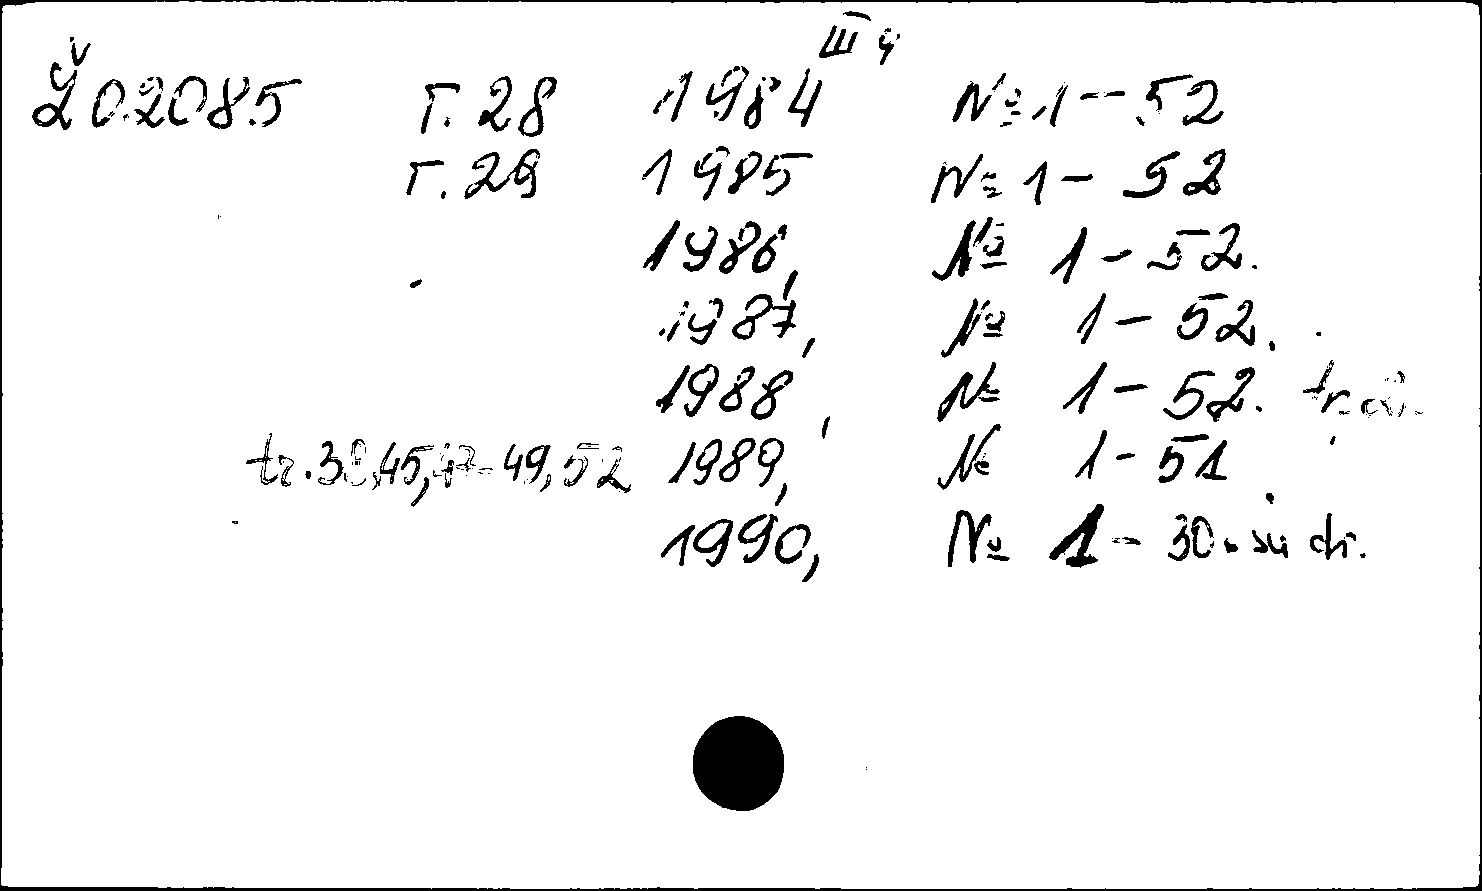 III 4
Ž02085 Г. 28 1984 № 1 – 52
Г. 29 1985 № 1 – 52
1986, № 1 – 52.
1987, № 1 – 52.
1988, № 1 – 52. tr.
tr. 45, 49, 52 1989, № 1 - 51
1990, № 1 - 30. su tr.